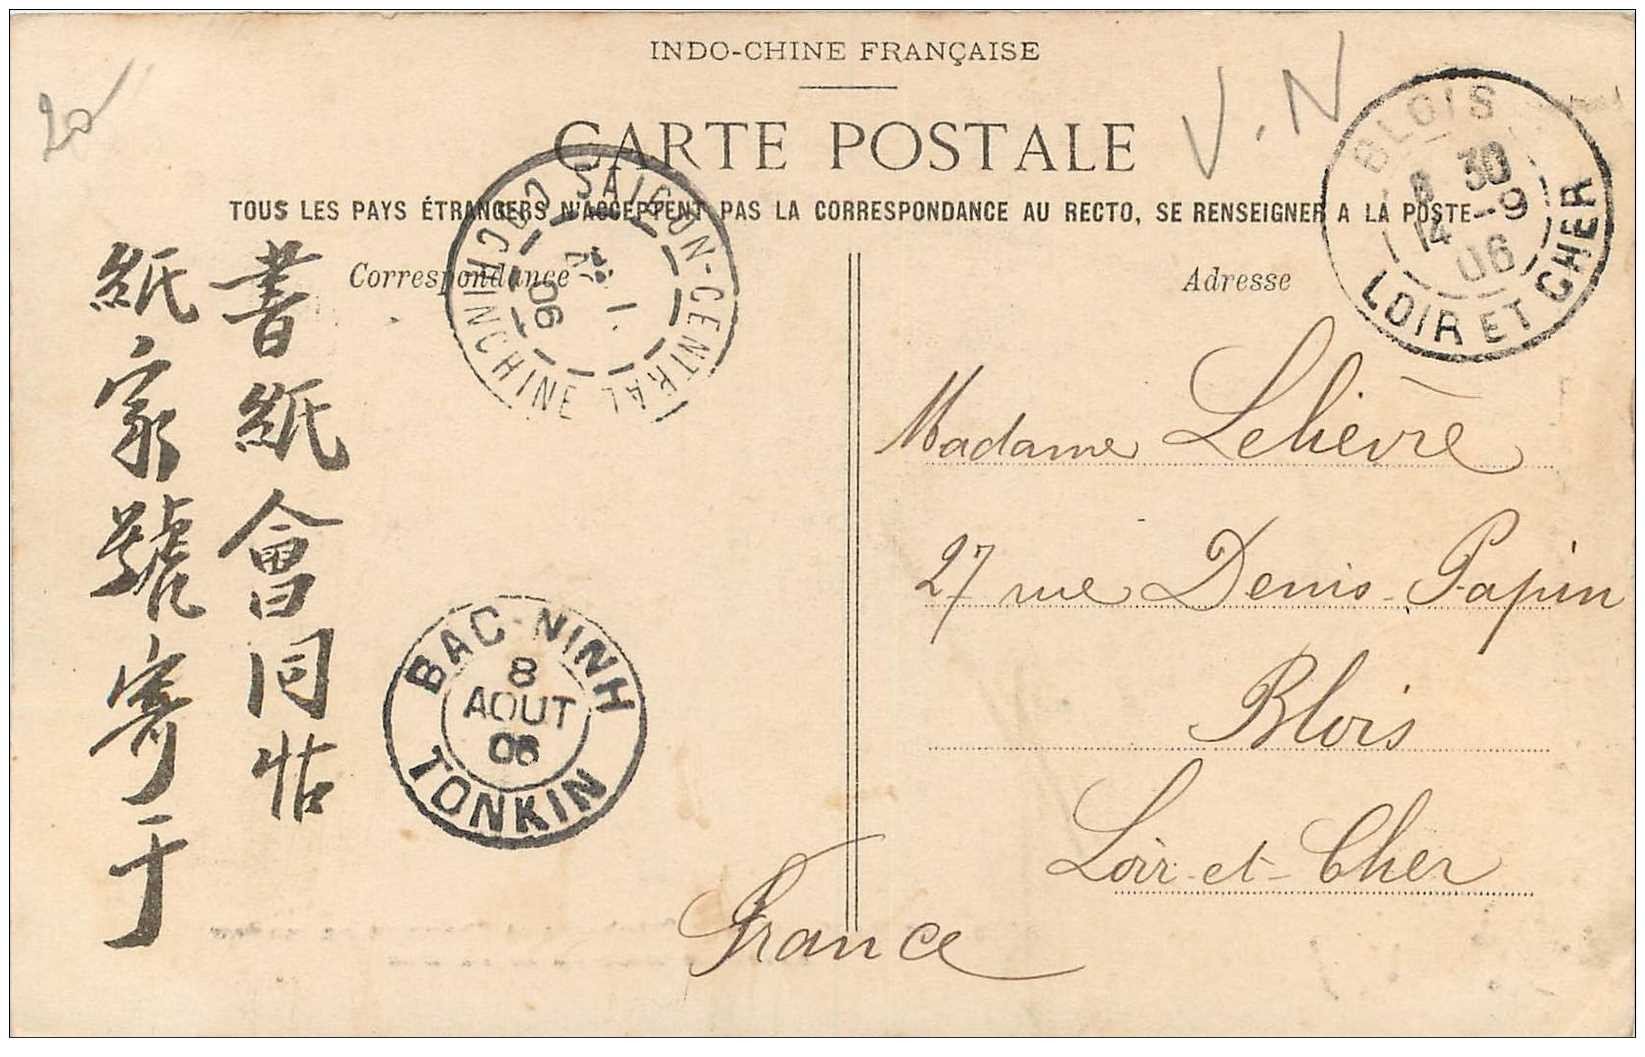 INDO-CHINE FRANÇAISE
CARTE POSTALE
TOUS LES PAYS ÉTRANGERS N'ACCEPTENT PAS LA CORRESPONDANCE AU RECTO, SE RENSEIGNER A LA POSTE
Correspondance
Adresse
20
V.N
BLOIS
30
14 -9
06
LOIR ET CHER
SAIGON-CENTRAL
COCHINCHINE
1
06
BAC-NINH
8
AOUT
06
TONKIN
書紙會同怙
紙家號寄于
Madame Lelièvre
27 rue Denis-Papin
Blois
Loir-et-Cher
France